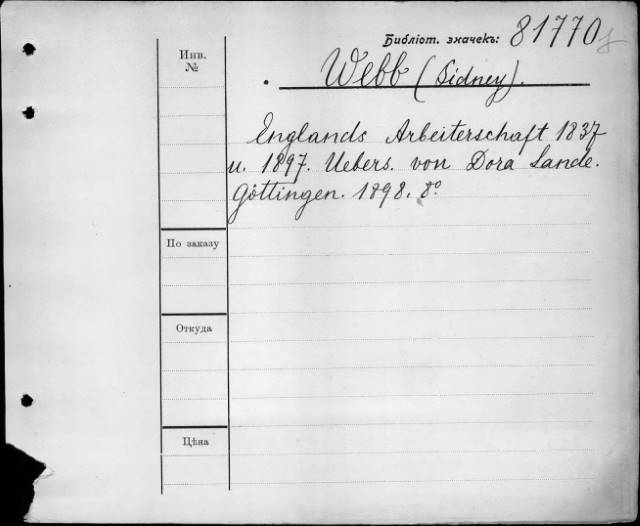 Библіот. значекъ: 81770
Инв.
№
Webb (Sidney).
Englands Arbeiterschaft 1837
u. 1897. Uebers. von Dora Lande.
Göttingen. 1898. 8°
По заказу
Откуда
Цѣна